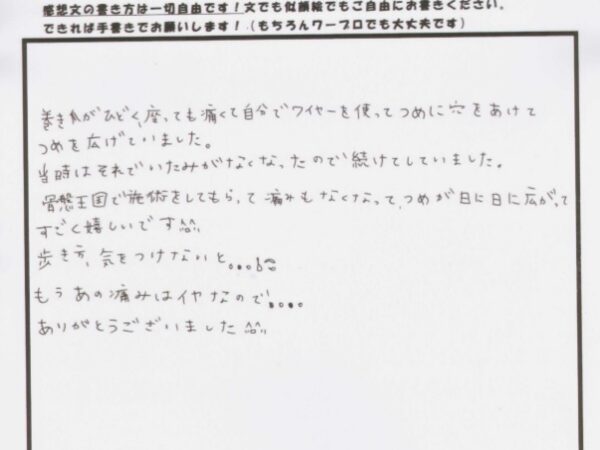 感想文の書き方は一切自由です！文でも似顔絵でもご自由にお書きください。
できれば手書きでお願いします！（もちろんワープロでも大丈夫です）
巻き爪がひどく、座っても痛くて自分でワイヤーを使ってつめに穴をあけて
つめを広げていました。
当時はそれでいたみがなくなったので続けてしていました。
骨盤王国で施術をしてもらって痛みもなくなって、つめが日に日に広がって
すごく嬉しいです^^
歩き方、気をつけないと。。。
もうあの痛みはイヤなので。。。。
ありがとうございました^^